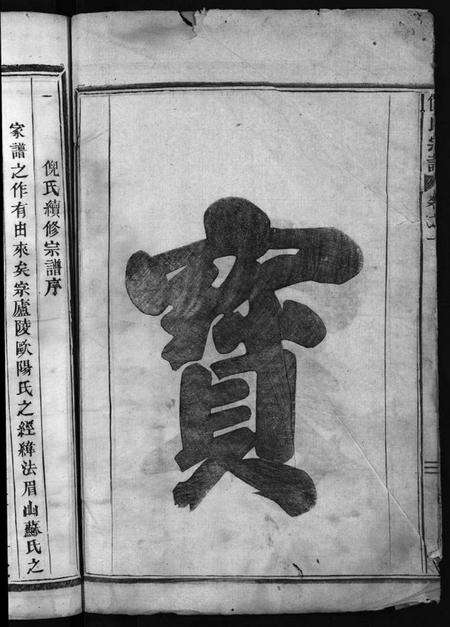 倪氏宗譜
卷之一
三
寶
倪氏續修宗譜序
家譜之作有由來矣宗廬陵歐陽氏之經緯法眉山蘇氏之